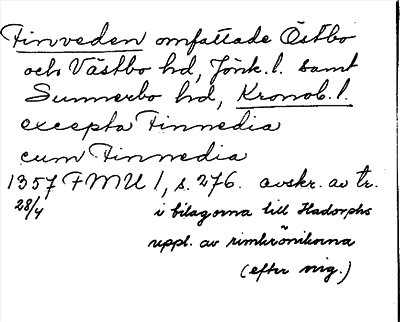 Finveden omfattade Östbo
och Västbo hd, Jönk. l. samt
Sunnerbo hd, Kronob. l.
excepta Finnedia
cum Finnedia
1357 FMU 1, s. 276. avskr. av tr.
28/4 i bilagorna till Hadorphs
uppl. av rimkrönikorna
(efter mig.)